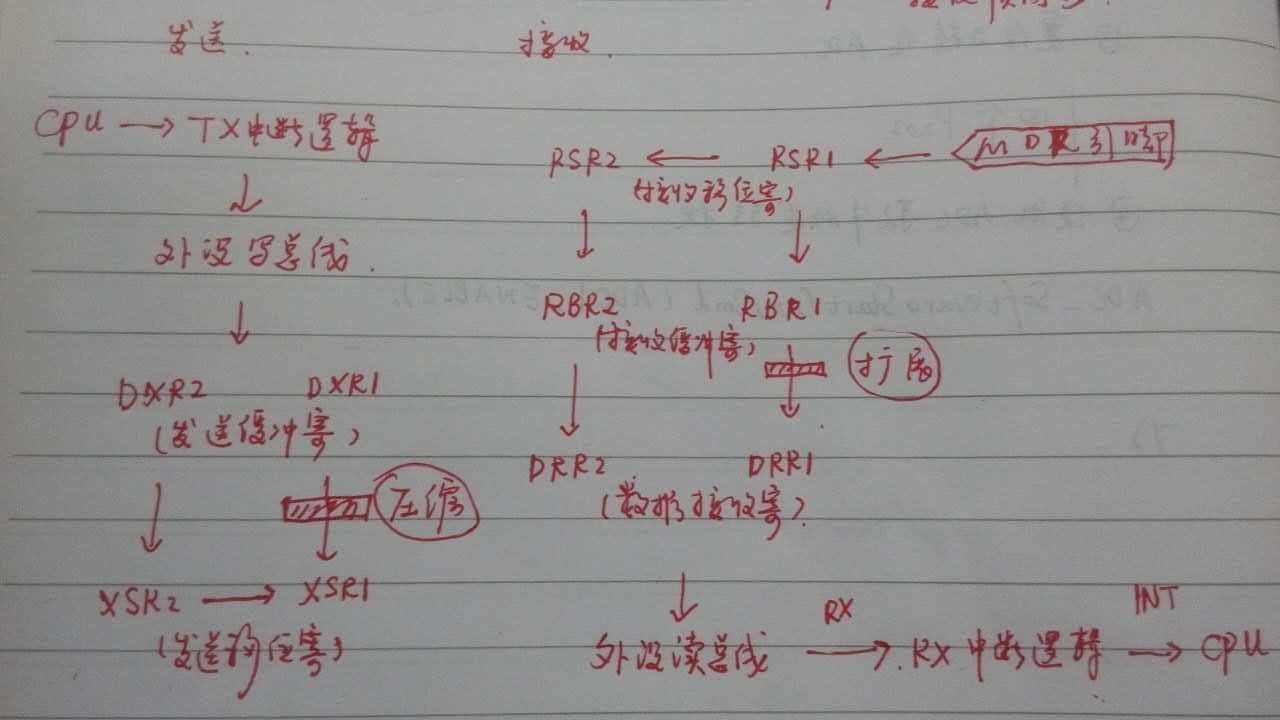 发送. 接收.
CPU → TX中断逻辑
RSR2 ← RSR1 ← MDR引脚
(接收移位寄)
外设写总线.
RBR2 RBR1
(接收缓冲寄)
扩展
DXR2 DXR1
(发送缓冲寄)
DRR2 DRR1
(数据接收寄)
压缩
XSR2 → XSR1
(发送移位寄)
RX INT
外设读总线 → RX中断逻辑 → CPU